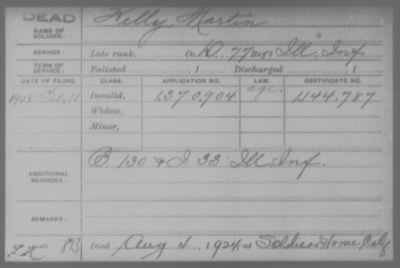 DEAD
NAME OF SOLDIER: Kelly Martin
SERVICE: Late rank, Co. D, 77 Reg't Ill. Inf.
TERM OF SERVICE: Enlisted , 1 Discharged , 1
DATE OF FILING. CLASS. APPLICATION NO. LAW. CERTIFICATE NO.
1908 Feb. 11 Invalid, 1370.904 age. 1144.787
Widow,
Minor,
ADDITIONAL SERVICES: B. 130 & I 33 Ill. Inf.
REMARKS:
Died Aug 4, 1924, at Soldiers Home, Calif